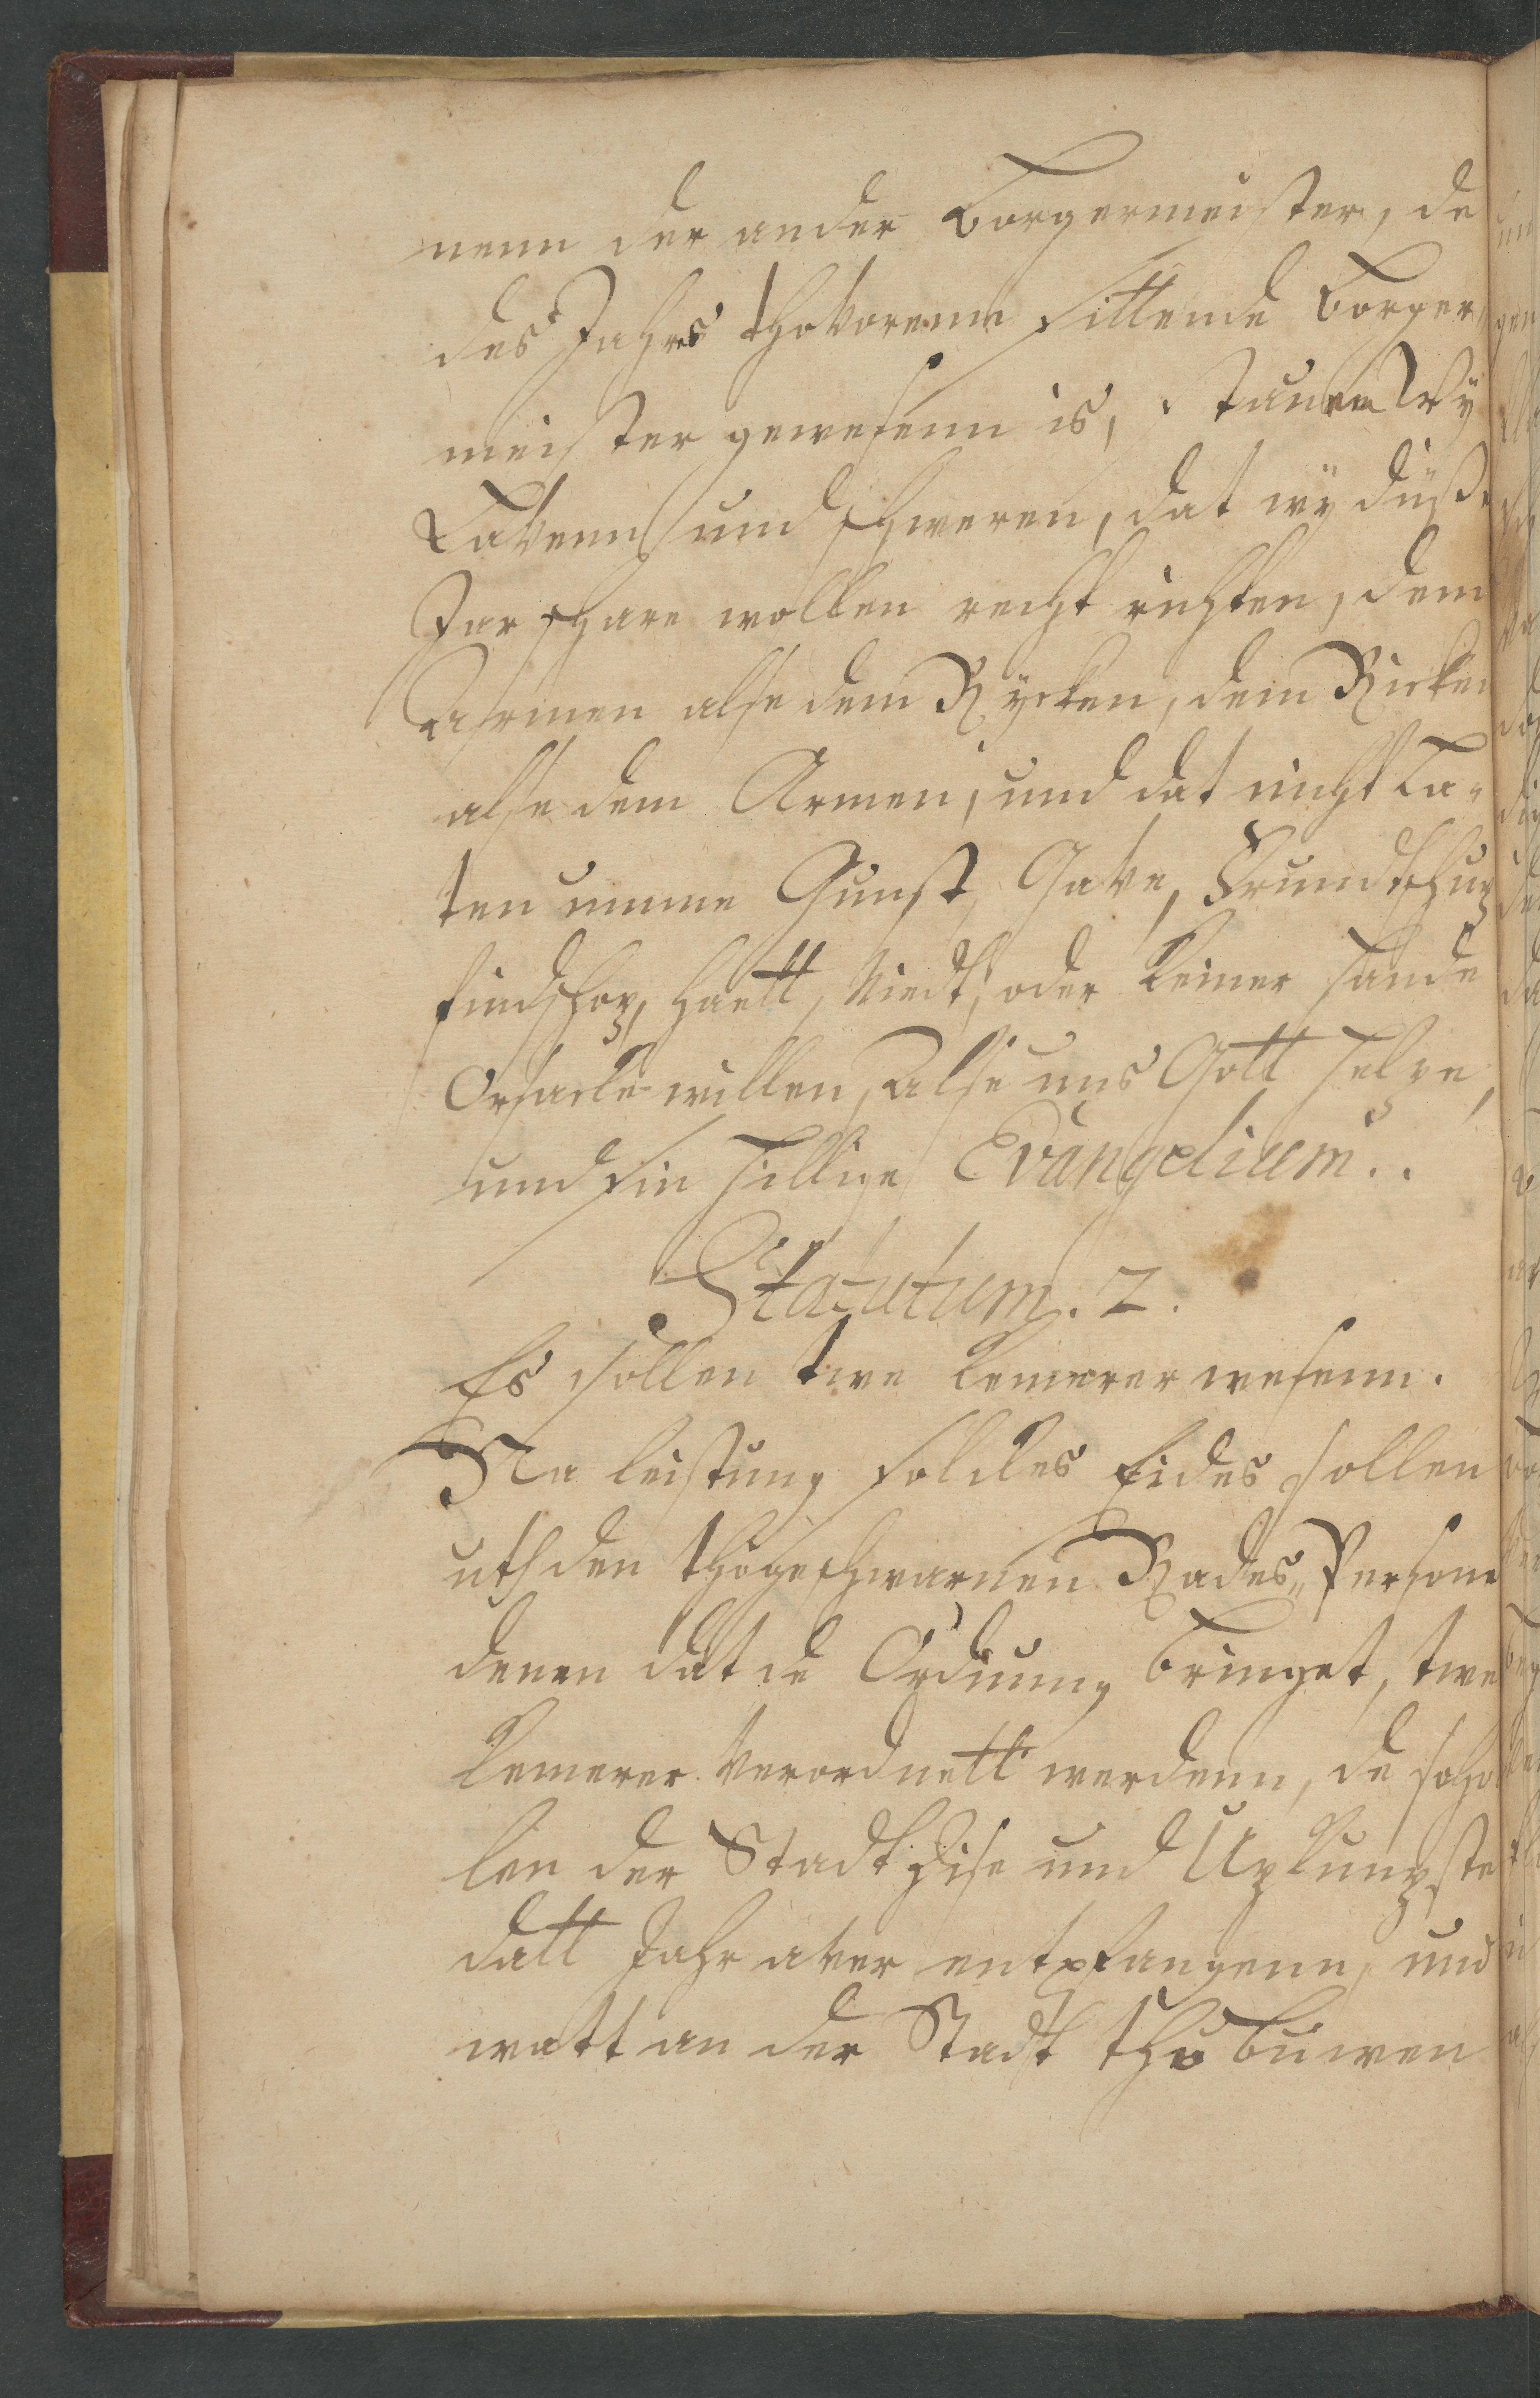 nenn der ander Borgermeister, de
des Jahrs thovorenn sittende Borger„
meister gewesenn is, stauen Wy
Lavenn und schweren, dat wÿ düße
Jar schare wollen recht richten, dem
Armen alse dem Rÿcken, dem Ricken
alse dem Armen, und dat nicht La„
ten umme Gunst, Gave, Frundtschup
findschop, haett, Niedt, oder keiner hande
Orsacke willen, alse uns Gott helpe,
und sin hillige Evangelium..
Statutum. 2.
Es söllen twe kemerer wesenn.
Na leistung solckes Eides söllen
uth den thogeschwarnen Rades„Persone
denen dat de Ordnung bringet, twe
kemerer verordnett werdenn, de scho
len der Stadt Zise und Upkumpste
datt Jahr aver entpfangenn, und
watt an der Stadt tho buwen